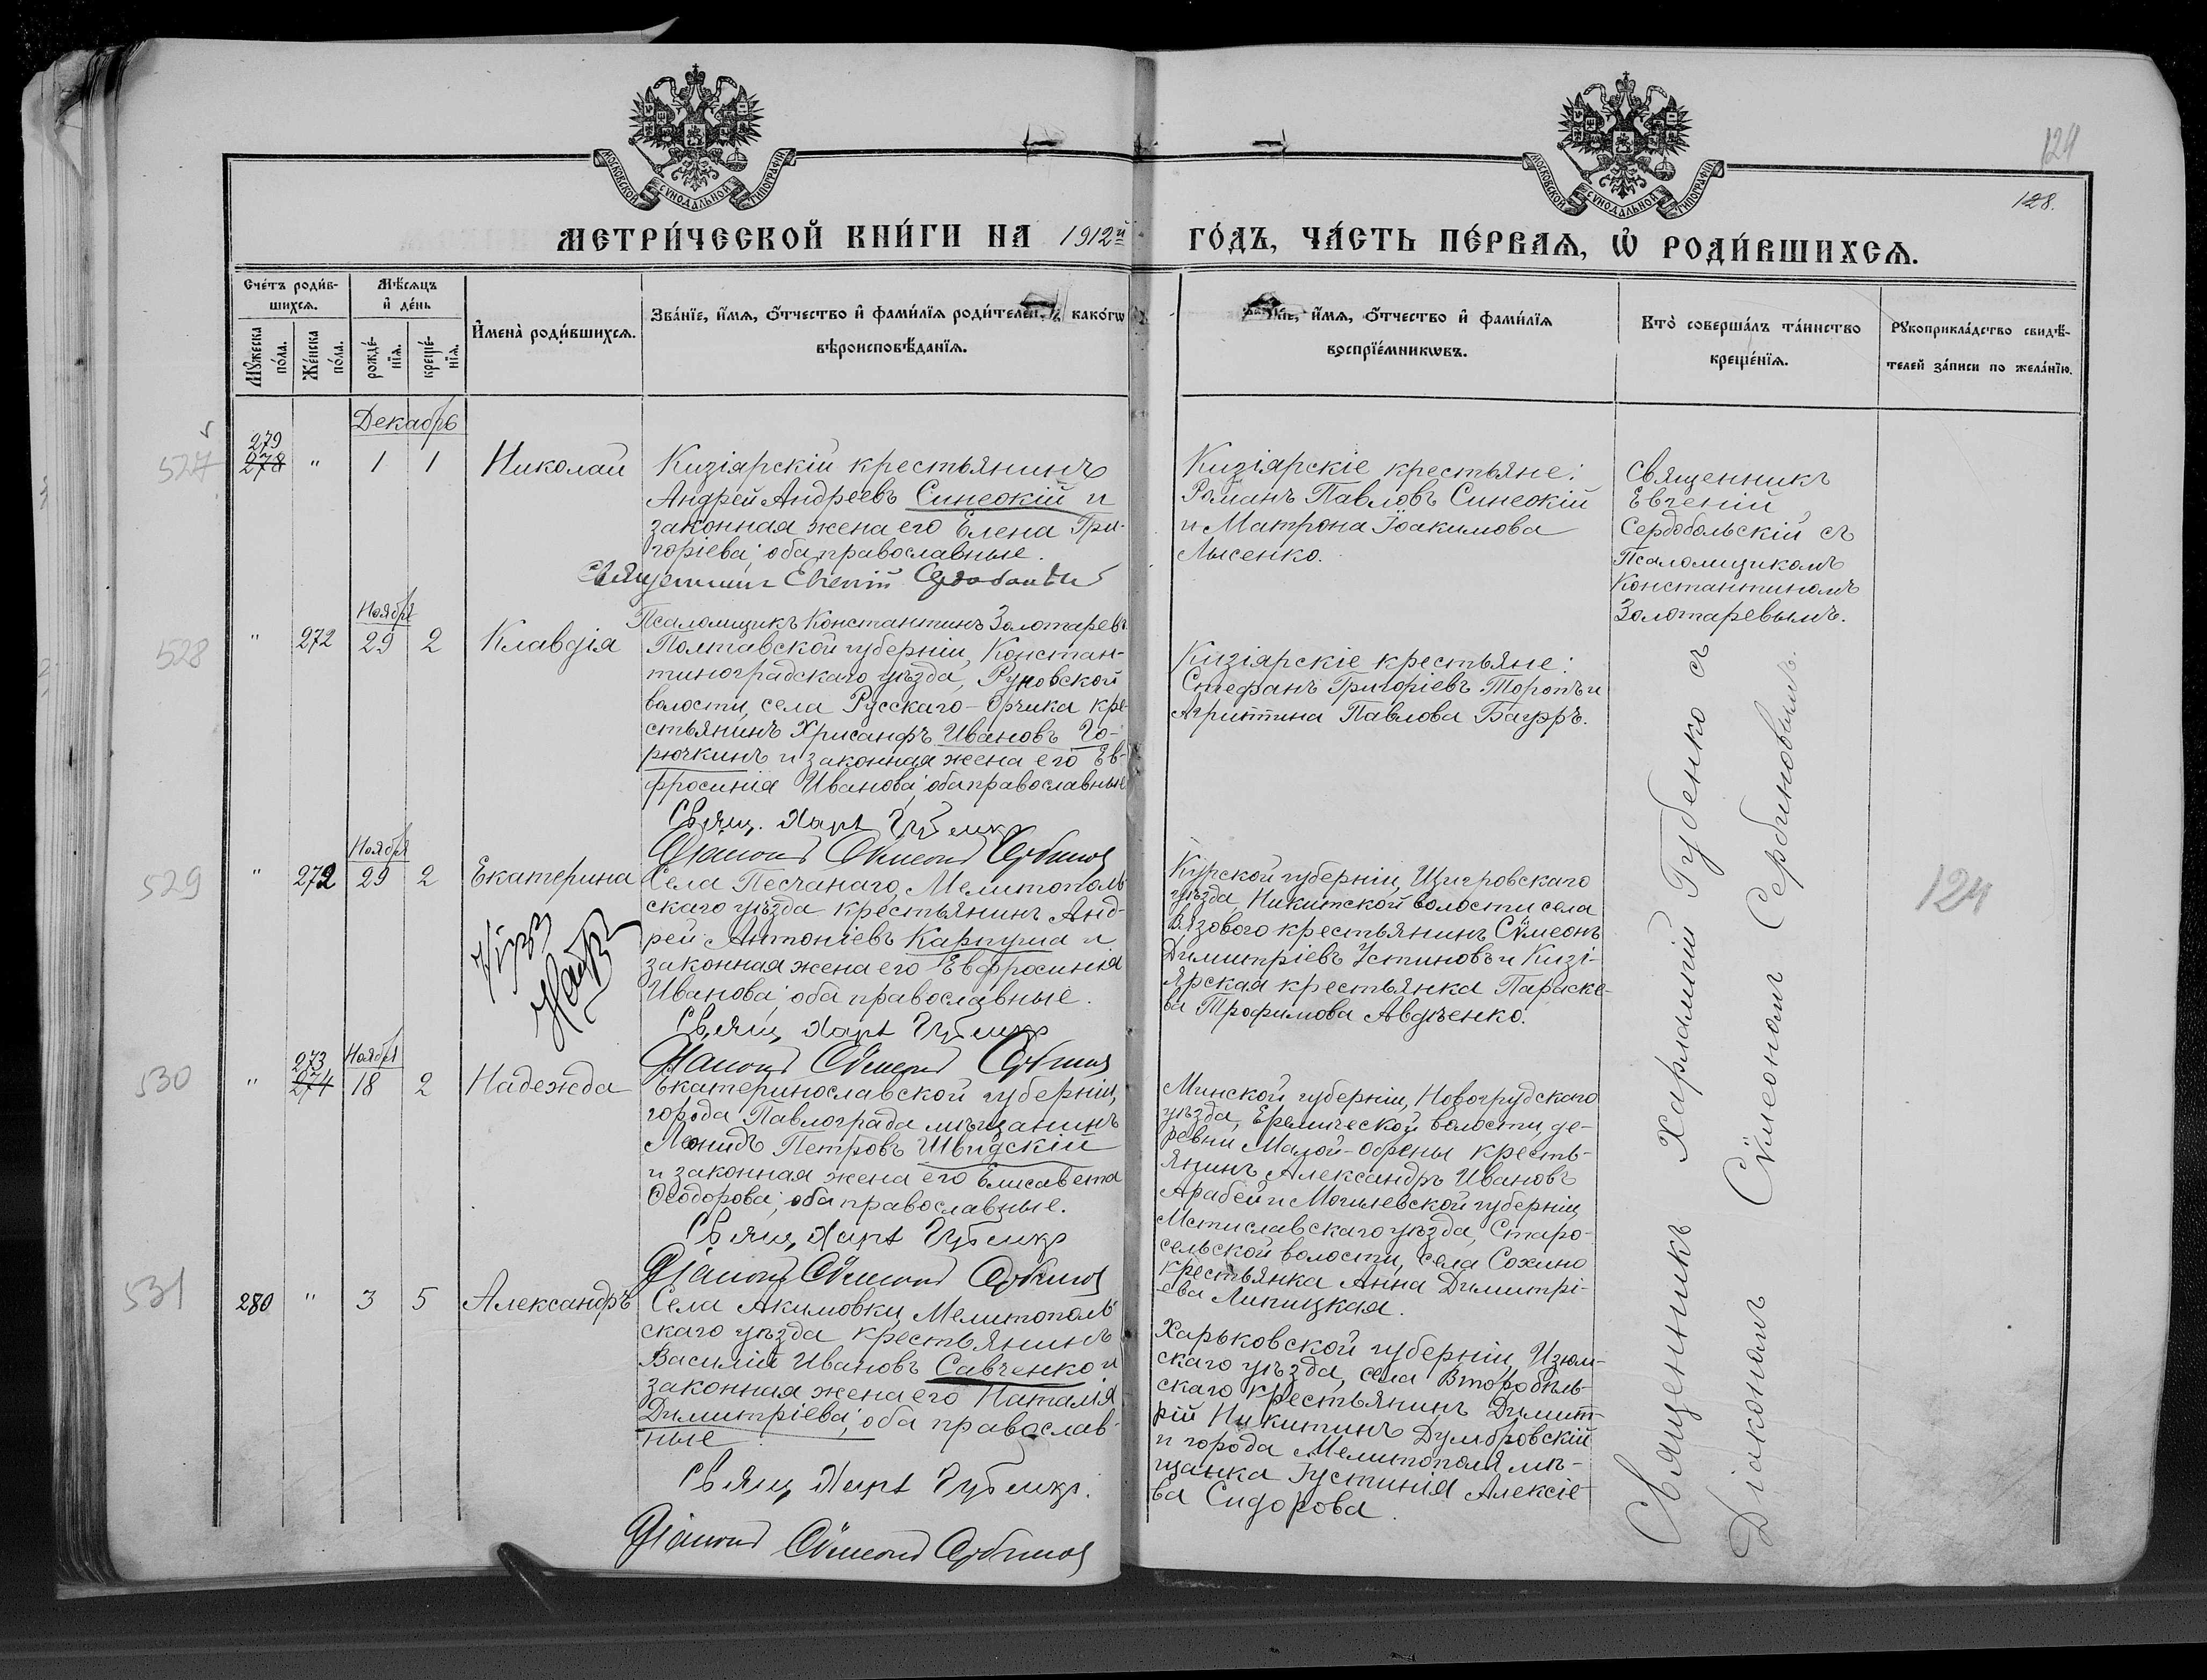 МОСКОВСКОЙ СѴНОДАЛЬНОЙ ТИПОГРАФІИ
МОСКОВСКОЙ СѴНОДАЛЬНОЙ ТИПОГРАФІИ
124
128.
МЕТРИ́ЧЕСКОЙ КНИ́ГИ НА 1912й ГО́ДЪ, ЧА́СТЬ ПЕ́РВАѦ, Ѡ РОДИ́ВШИХСѦ.
Сче́тъ роди́в-
шихсѧ.
Мꙋ́жеска по́ла.
Же́нска по́ла.
Мѣ́сѧцъ
и҆ де́нь
рожде́нїѧ.
креще́нїѧ.
И҆мена̀ роди́вшихсѧ.
Зва́нїе, и҆́мѧ, ѻ҆́тчество и҆ фами́лїѧ роди́телей, како́гѡ
вѣроисповѣ́данїѧ.
и҆́мѧ, ѻ҆́тчество и҆ фами́лїѧ
воспрїе́мникѡвъ.
Кто̀ соверша́лъ та́инство
креще́нїѧ.
Рꙋкоприкла́дство свидѣ́-
телей за́писи по жела́нїю.
Декабрь
527
279
278 " 1 1 Николай
Кизіярскій крестьянинъ
Андрей Андреевъ Синеокій и
законная жена его Елена Гри-
горіева; оба православные.
Священникъ Евгеній Сердобольскій
Псаломщикъ Константинъ Золотаревъ
Кизіярскіе крестьяне:
Романъ Павловъ Синеокій
и Матрона Іоакимова
Лысенко.
Священникъ
Евгеній
Сердобольскій съ
Псаломщикомъ
Константиномъ
Золотаревымъ.
Ноябрь
528
" 272 29 2 Клавдія
Полтавской губерніи, Констан-
тиноградскаго уѣзда, Руновской
волости, села Русскаго-Орчика кре-
стьянинъ Хрисанфъ Ивановъ Го-
рючкинъ и законная жена его Ев-
фросинія Иванова; оба православные
Свящ. Харл. Губенко
Діаконъ Сѵмеонъ Сербиновъ
Кизіярскіе крестьяне:
Стефанъ Григоріевъ Торопъ и
Агриппина Павлова Баурръ.
Ноября
529
" 272 29 2 Екатерина
Села Песчанаго, Мелитополь
скаго уѣзда крестьянинъ Анд-
рей Антоніевъ Карпуша и
законная жена его Евфросинія
Иванова; оба православные.
Свящ. Харл. Губенко
Діаконъ Сѵмеонъ Сербиновъ
Курской губерніи, Щигровскаго
уѣзда, Никитской волости, села
Вязового крестьянинъ Сѵмеонъ
Димитріевъ Устиновъ и Кизі-
ярская крестьянка Параске-
ва Трофимова Авдѣенко.
124
Ноября
530
273
274 " 18 2 Надежда
Екатеринославской губерніи,
города Павлограда мѣщанинъ
Леонидъ Петровъ Швидскій
и законная жена его Елисавета
Ѳеодорова; оба православные.
Свящ. Харл. Губенко
Діаконъ Сѵмеонъ Сербиновъ
Минской губерніи, Новогрудскаго
уѣзда, Еремической волости, де-
ревни Малой-Обрены кресть-
янинъ Александръ Ивановъ
Арабей и Могилевской губерніи,
Мстиславскаго уѣзда, Старо-
сельской волости, села Сохино
крестьянка Анна Димитрі-
ева Липицкая.
531
280 " 3 5 Александръ
Села Акимовки, Мелитополь
скаго уѣзда крестьянинъ
Василій Ивановъ Савченко и
законная жена его Наталія
Димитріева; оба православ-
ные
Свящ. Харл. Губенко.
Діаконъ Сѵмеонъ Сербиновъ
Харьковской губерніи, Изюм-
скаго уѣзда, села Второбѣль-
скаго крестьянинъ Димит-
рій Никитинъ Думбровскій
и города Мелитополя мѣ-
щанка Іустинія Алексіе-
ва Сидорова.
Священникъ Харлампій Губенко съ
Діакономъ Сѵмеономъ Сербиновымъ.